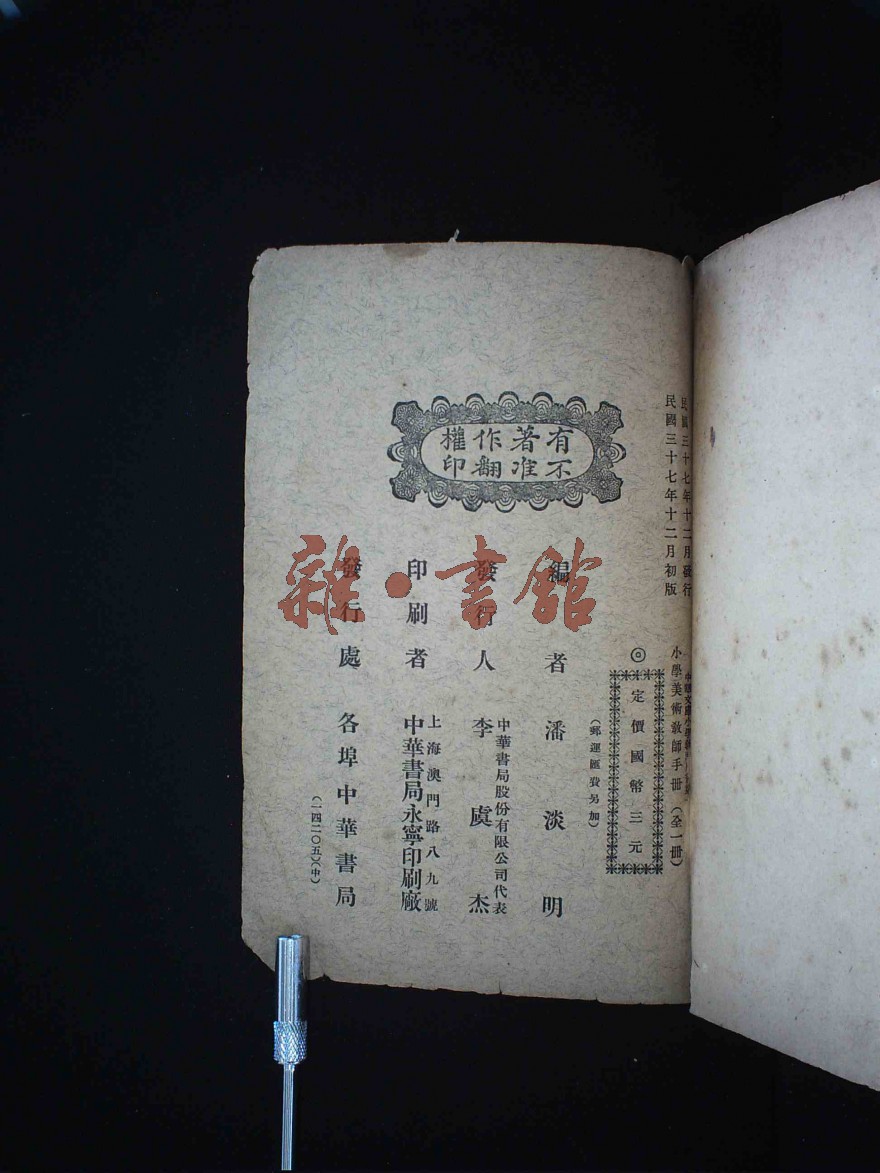 民國三十七年十二月發行
民國三十七年十二月初版
小學美術教師手冊(全一冊)
◎
定價國幣三元
(郵運匯費另加)
有著作權
不准翻印
編者 潘淡明
發行人 李虞杰
中華書局股份有限公司代表
印刷者 中華書局永寧印刷廠
上海澳門路八九號
發行處 各埠中華書局
(一四二〇五)(中)
雜·書館